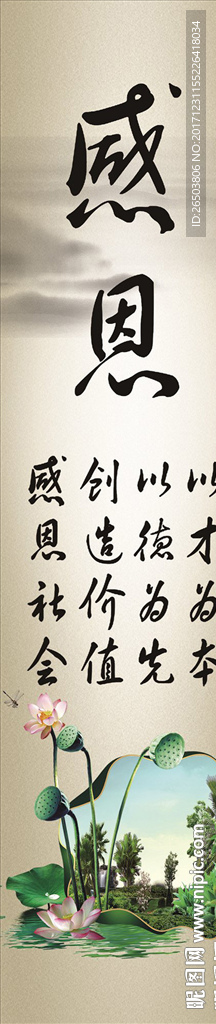 感恩
以才为本
以德为先
创造价值
感恩社会
ID:26503806 NO:20171231155226418034
昵图网 www.nipic.com